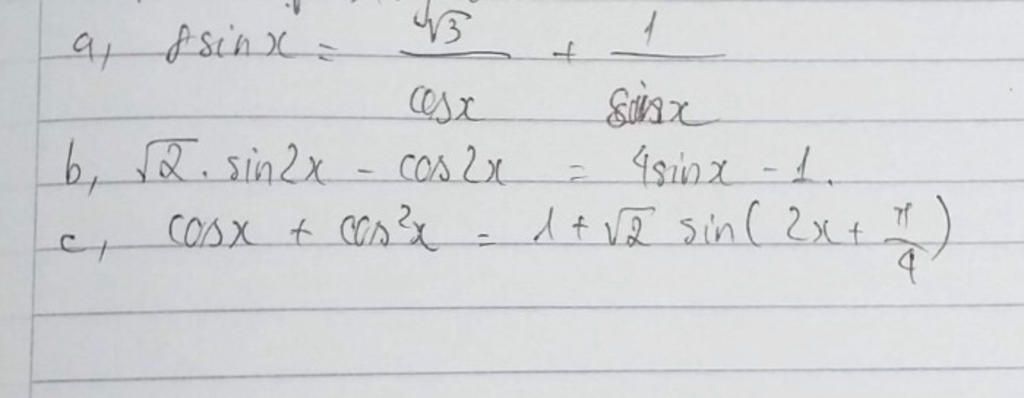 a, 8sinx = √3/cosx + 1/sinx
b, √2. sin2x - cos2x = 4sinx - 1.
c, cosx + cos²x = 1 + √2 sin( 2x + π/4 )